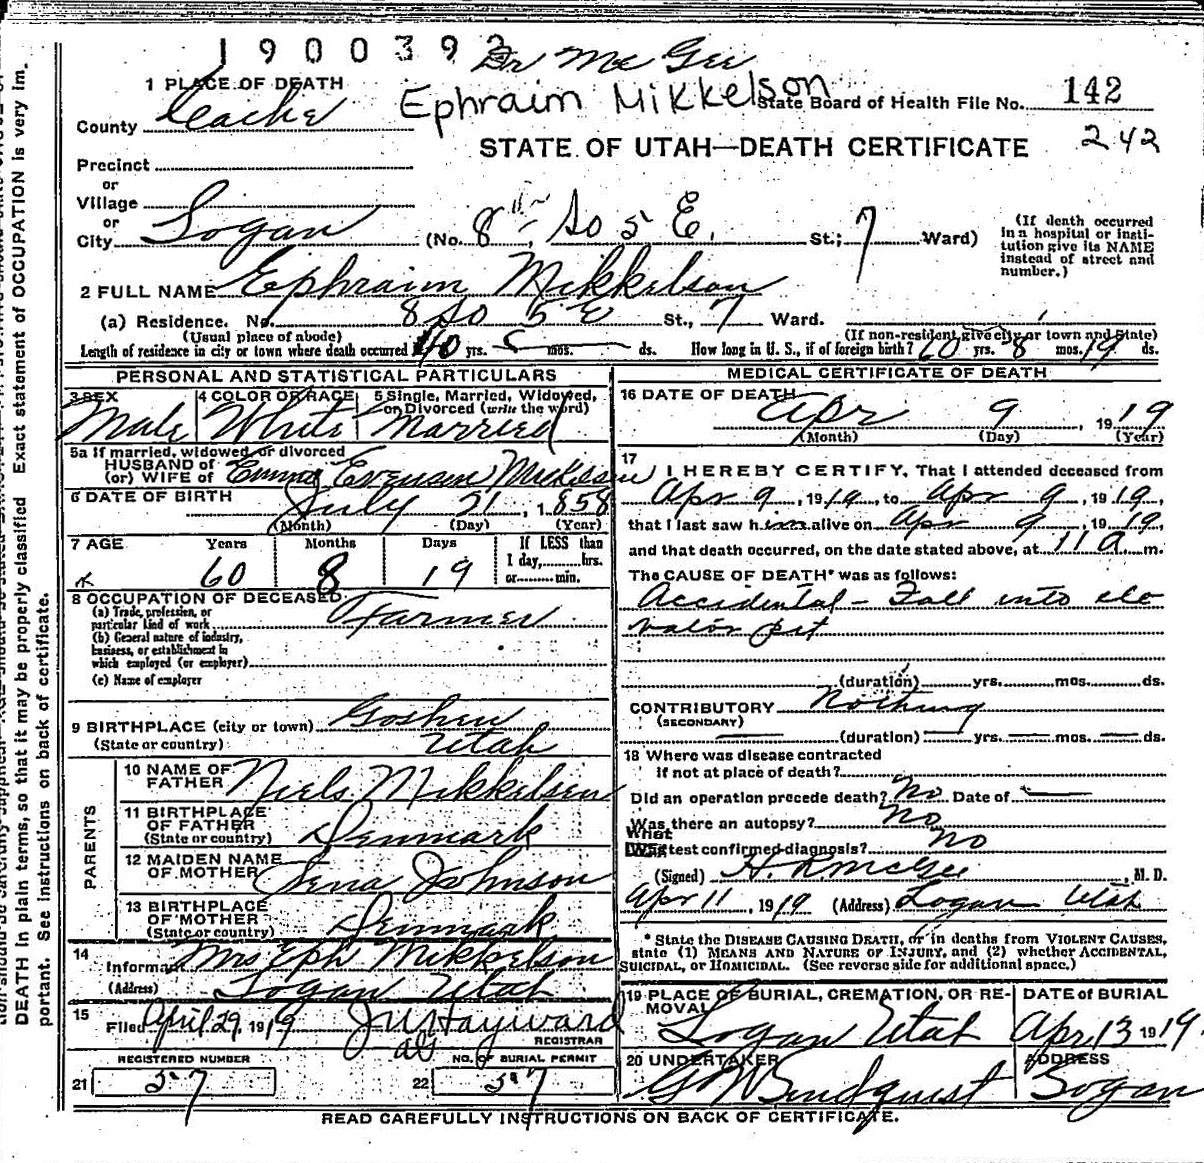 1900392 Dr McGee
Ephraim Mikkelson
1 PLACE OF DEATH
County Cache
State Board of Health File No. 142
242
STATE OF UTAH—DEATH CERTIFICATE
Precinct
or
Village
or
City Logan (No. 8th So 5 E. St.; 7 Ward)
(If death occurred
in a hospital or insti-
tution give its NAME
instead of street and
number.)
2 FULL NAME Ephraim Mikkelson
(a) Residence. No. 8 So 5 E St., 7 Ward.
(Usual place of abode) (If non-resident give city or town and State)
Length of residence in city or town where death occurred 40 yrs. mos. ds. How long in U. S., if of foreign birth? 60 yrs. 8 mos. 19 ds.
PERSONAL AND STATISTICAL PARTICULARS
3 SEX 4 COLOR OR RACE 5 Single, Married, Widowed,
or Divorced (write the word)
Male White Married
5a If married, widowed or divorced
HUSBAND of
(or) WIFE of Emma Evensen Mickelsen
6 DATE OF BIRTH
July 21, 1858
(Month) (Day) (Year)
7 AGE Years Months Days If LESS than
1 day, hrs.
or min.
60 8 19
8 OCCUPATION OF DECEASED
(a) Trade, profession, or
particular kind of work Farmer
(b) General nature of industry,
business, or establishment in
which employed (or employer)
(c) Name of employer
9 BIRTHPLACE (city or town) Goshen
(State or country) Utah
PARENTS
10 NAME OF
FATHER Niels Mikkelsen
11 BIRTHPLACE
OF FATHER
(State or country) Denmark
12 MAIDEN NAME
OF MOTHER Sena Johnson
13 BIRTHPLACE
OF MOTHER
(State or country) Denmark
14 Informant Mrs Eph Mikkelson
(Address) Logan Utah
15 Filed April 29, 1919 J W Hayward
REGISTRAR
REGISTERED NUMBER NO. OF BURIAL PERMIT
21 57 22 57
MEDICAL CERTIFICATE OF DEATH
16 DATE OF DEATH
Apr 9, 1919
(Month) (Day) (Year)
17 I HEREBY CERTIFY, That I attended deceased from
Apr 9, 1919, to Apr 9, 1919,
that I last saw him alive on Apr 9, 1919,
and that death occurred, on the date stated above, at 11 a m.
The CAUSE OF DEATH* was as follows:
Accidental - Fall into ele
vator pit
(duration) yrs. mos. ds.
CONTRIBUTORY Nothing
(SECONDARY)
(duration) yrs. mos. ds.
18 Where was disease contracted
If not at place of death?
Did an operation precede death? No Date of
Was there an autopsy? No
What
test confirmed diagnosis? no
(Signed) H. R. McGee, M. D.
Apr 11, 1919 (Address) Logan Utah
* State the DISEASE CAUSING DEATH, or in deaths from VIOLENT CAUSES,
state (1) MEANS AND NATURE OF INJURY, and (2) whether ACCIDENTAL,
SUICIDAL, or HOMICIDAL. (See reverse side for additional space.)
19 PLACE OF BURIAL, CREMATION, OR RE-
MOVAL
Logan Utah
DATE of BURIAL
Apr 13 1919
20 UNDERTAKER
G W Lindquist
ADDRESS
Logan
READ CAREFULLY INSTRUCTIONS ON BACK OF CERTIFICATE.
DEATH in plain terms, so that it may be properly classified. Exact statement of OCCUPATION is very im-
portant. See instructions on back of certificate.